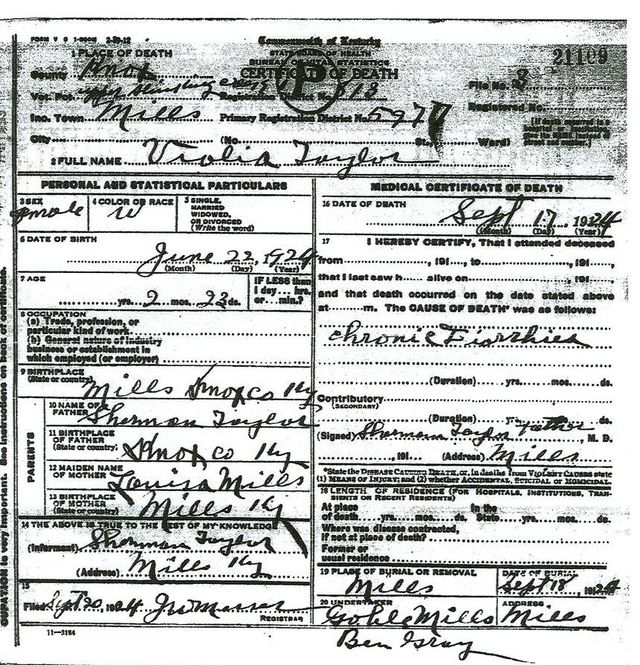 FORM V S 1-
Commonwealth of Kentucky
STATE BOARD OF HEALTH
BUREAU OF VITAL STATISTICS
CERTIFICATE OF DEATH
21109
1 PLACE OF DEATH
County Knox
File No. 8
Vot. Pct. Registration District No. 513
Registered No.
Inc. Town Mills Primary Registration District No. 5977
City (No. St., Ward)
[If death occurred in a
2 FULL NAME Violia Taylor
PERSONAL AND STATISTICAL PARTICULARS
3 SEX
4 COLOR OR RACE W
5 SINGLE, MARRIED WIDOWED, OR DIVORCED (Write the word)
6 DATE OF BIRTH
June 22, 1924
(Month) (Day) (Year)
7 AGE
yrs. 2 mos. 23 ds.
IF LESS than 1 day... hrs. or... min.?
8 OCCUPATION
(a) Trade, profession, or
particular kind of work
(b) General nature of industry
business or establishment in
which employed (or employer)
9 BIRTHPLACE
(State or country) Mills Knox co Ky
PARENTS
10 NAME OF FATHER Sherman Taylor
11 BIRTHPLACE OF FATHER (State or country) Knox co Ky
12 MAIDEN NAME OF MOTHER Louisa Mills
13 BIRTHPLACE OF MOTHER (State or country) Mills Ky
14 THE ABOVE IS TRUE TO THE BEST OF MY KNOWLEDGE
(Informant) Sherman Taylor
(Address) Mills Ky
15
Filed Sept 20, 1924
REGISTRAR
11-3184
MEDICAL CERTIFICATE OF DEATH
16 DATE OF DEATH
Sept 17, 1924
(Month) (Day) (Year)
17 I HEREBY CERTIFY, That I attended deceased
from , 191 , to , 191 ,
that I last saw h alive on , 191
and that death occurred on the date stated above
at m. The CAUSE OF DEATH* was as follows:
Chronic
(Duration) yrs. mos. ds.
Contributory
(SECONDARY)
(Duration) yrs. mos. ds.
(Signed) Sherman Taylor Father, M. D.
, 191 (Address) Mills
*State the DISEASE CAUSING DEATH, or, in deaths from VIOLENT CAUSES state
(1) MEANS OF INJURY; and (2) whether ACCIDENTAL, SUICIDAL or HOMICIDAL.
18 LENGTH OF RESIDENCE (FOR HOSPITALS, INSTITUTIONS, TRANSIENTS OR RECENT RESIDENTS)
At place In the
of death yrs. mos. ds. State yrs. mos. ds.
Where was disease contracted,
if not at place of death?
Former or
usual residence
19 PLACE OF BURIAL OR REMOVAL
Mills
DATE OF BURIAL
Sept 18, 1924
20 UNDERTAKER
Mills
Ben Gray
ADDRESS
Mills
OUPATION is very important. See instructions on back of certificate.